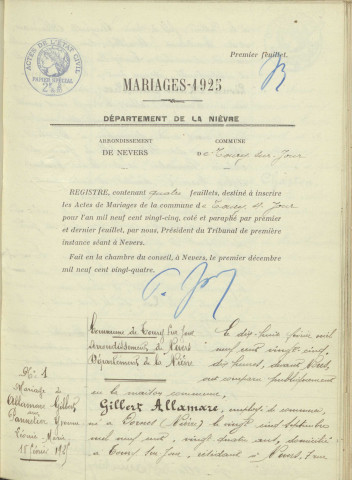 Premier feuillet.
ACTES DE L'ÉTAT CIVIL
PAPIER SPÉCIAL
MARIAGES-1925
DÉPARTEMENT DE LA NIÈVRE
ARRONDISSEMENT
DE NEVERS
COMMUNE
DE Toury sur Jour
REGISTRE, contenant quatre feuillets, destiné à inscrire
les Actes de Mariages de la commune de Toury s/ Jour
pour l'an mil neuf cent vingt-cinq, coté et paraphé par premier
et dernier feuillet, par nous, Président du Tribunal de première
instance séant à Nevers.
Fait en la chambre du conseil, à Nevers, le premier décembre
mil neuf cent vingt-quatre.
Commune de Toury sur Jour
Arrondissement de Nevers
Département de la Nièvre
N° 1
Mariage de
Allamare Gilbert
Le dix-huit février mil
neuf cent vingt cinq,
dix heures, devant Nous,
ont comparu publiquement
en la maison commune,
Gilbert Allamare, employé de commerce,
né à Dornes (Nièvre) le vingt
mil neuf cent, vingt quatre ans, domicilié
à Toury sur Jour, résidant à Nevers,